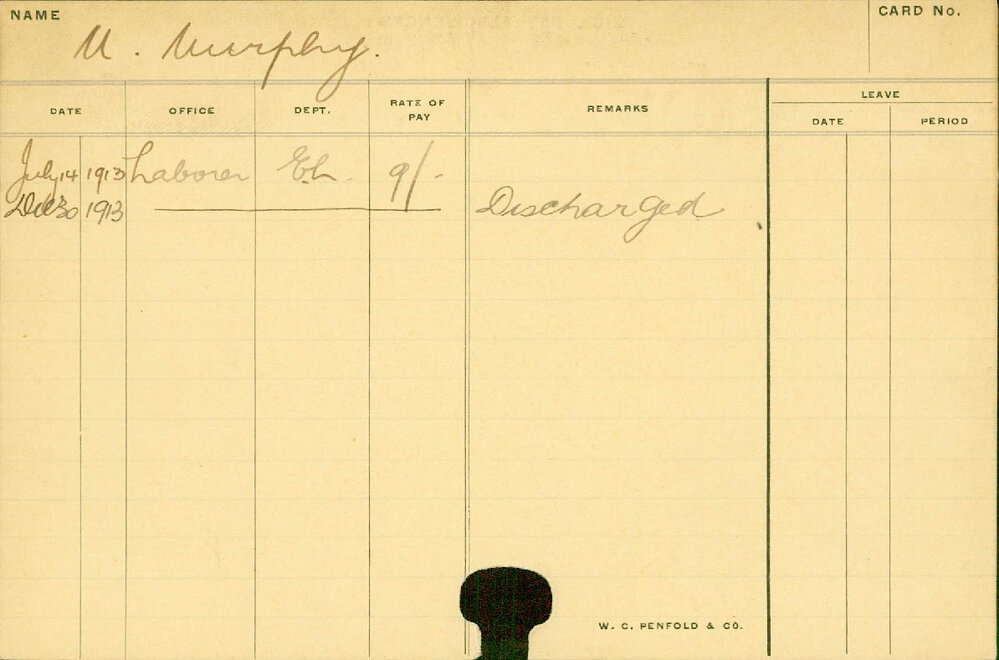 NAME
CARD No.
M. Murphy.
DATE OFFICE DEPT. RATE OF PAY REMARKS LEAVE
DATE PERIOD
July 14 1913 Laborer 9/-
Dec 30 1913 Discharged
W. C. PENFOLD & CO.